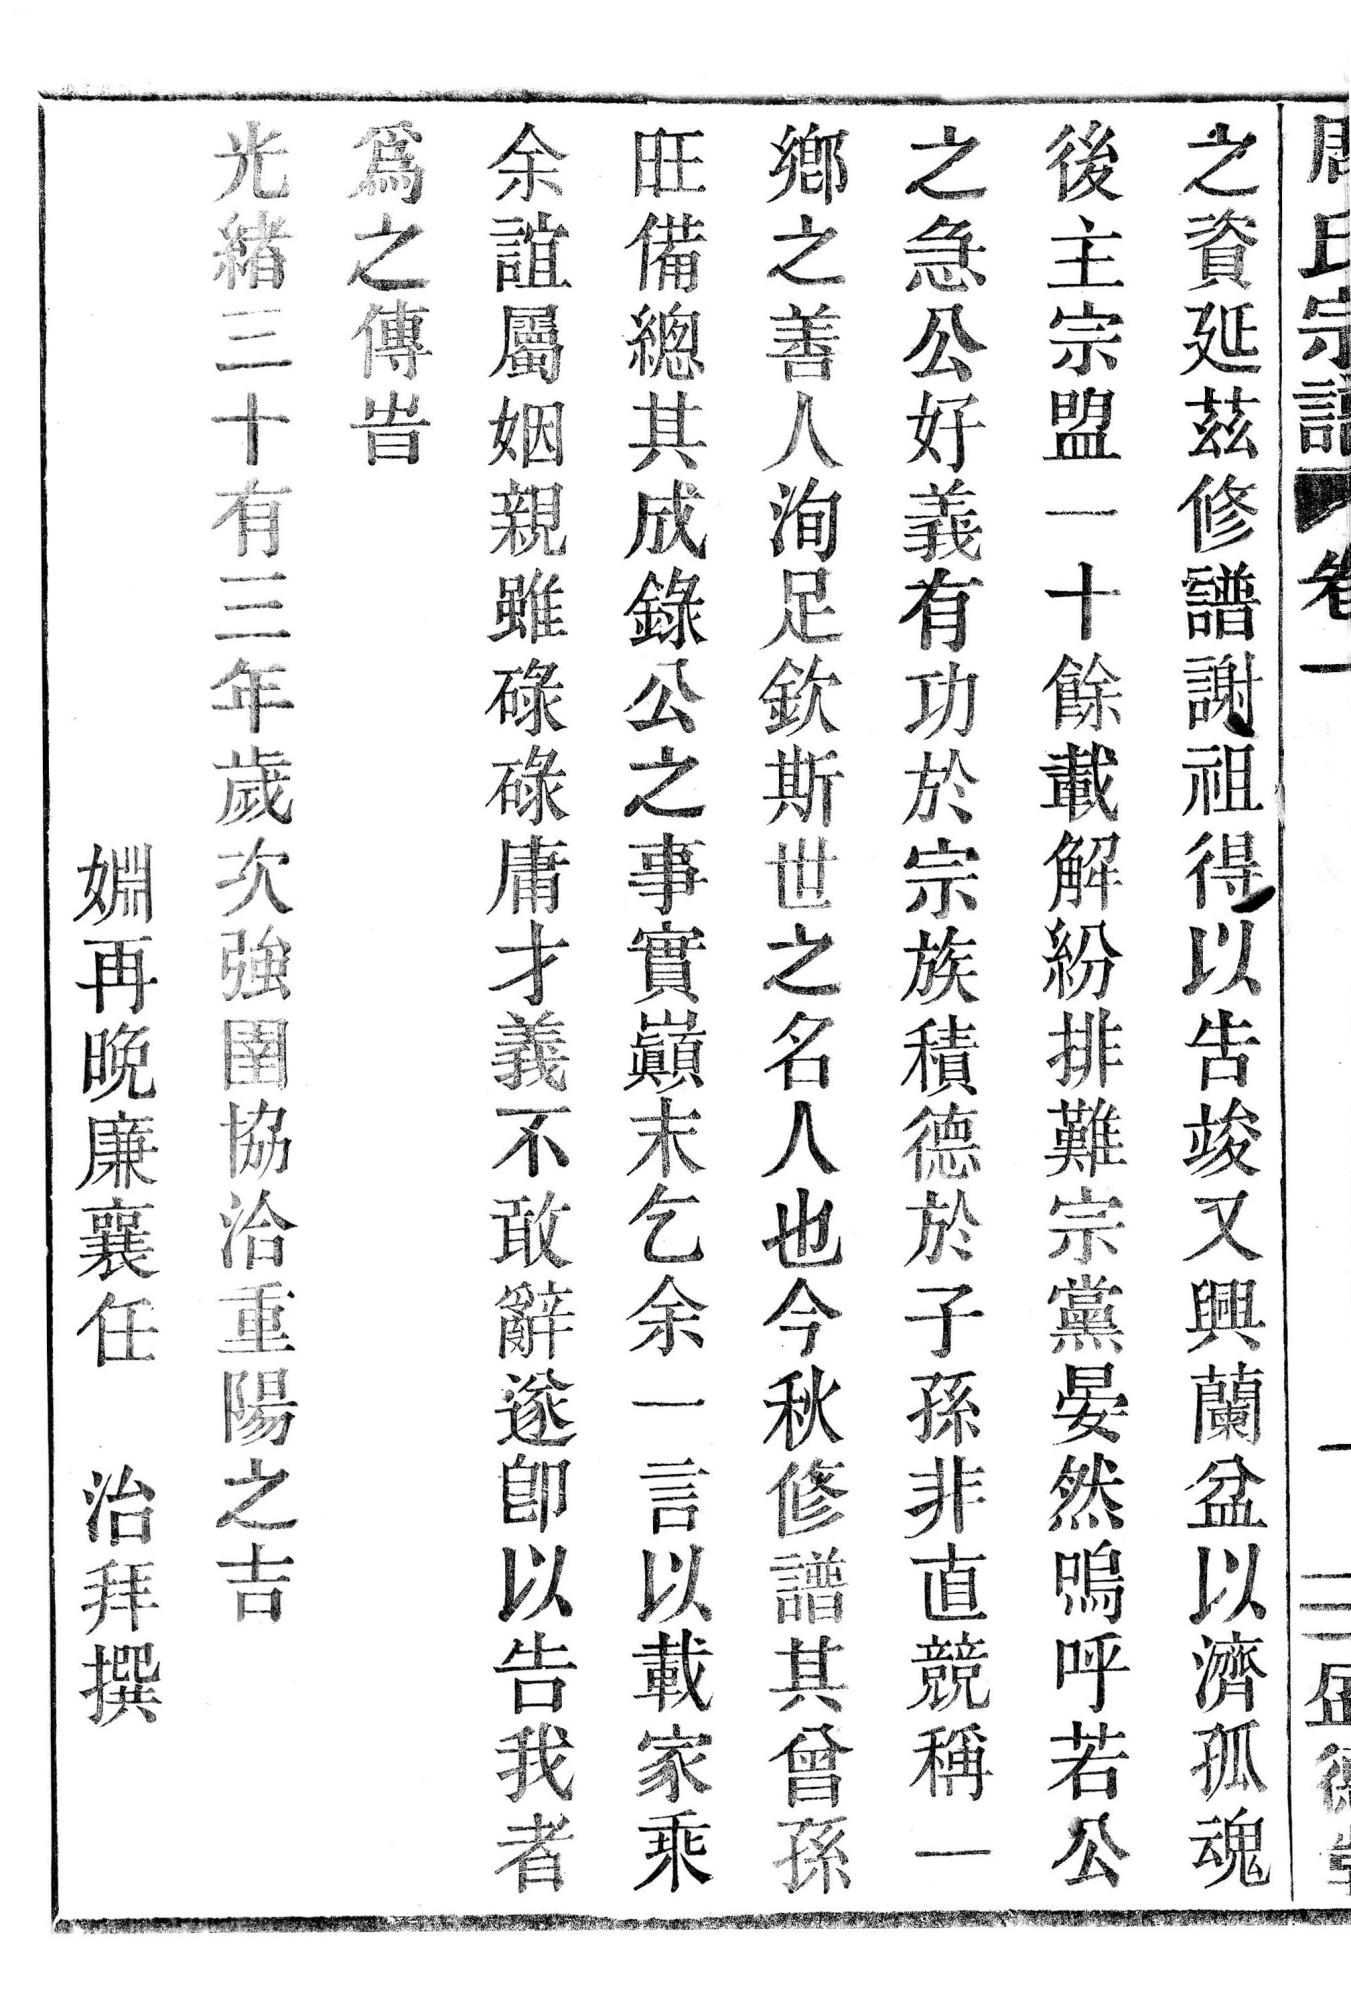 氏宗譜 卷一
之資延茲修譜謝祖得以告竣又興蘭盆以濟孤魂
後主宗盟一十餘載解紛排難宗黨晏然嗚呼若公
之急公好義有功於宗族積德於子孫非直競稱一
鄉之善人洵足欽斯世之名人也今秋修譜其曾孫
旺備總其成錄公之事實巔末乞余一言以載家乘
余誼屬姻親雖碌碌庸才義不敢辭遂卽以告我者
爲之傳旹
光緒三十有三年歲次強圉協洽重陽之吉
婣再晚廉襄任 治拜撰